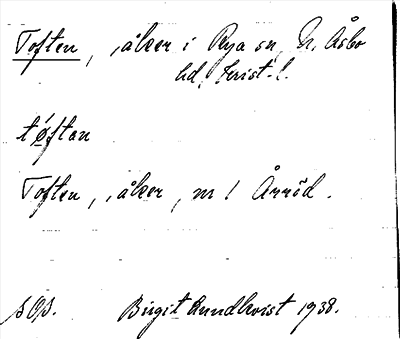 Toften, åker i Rya sn, N. Åsbo
hd, Krist. l.
tøftan
Toften, åker, n / Årröd.
SOB. Birgit Lundkvist 1938.